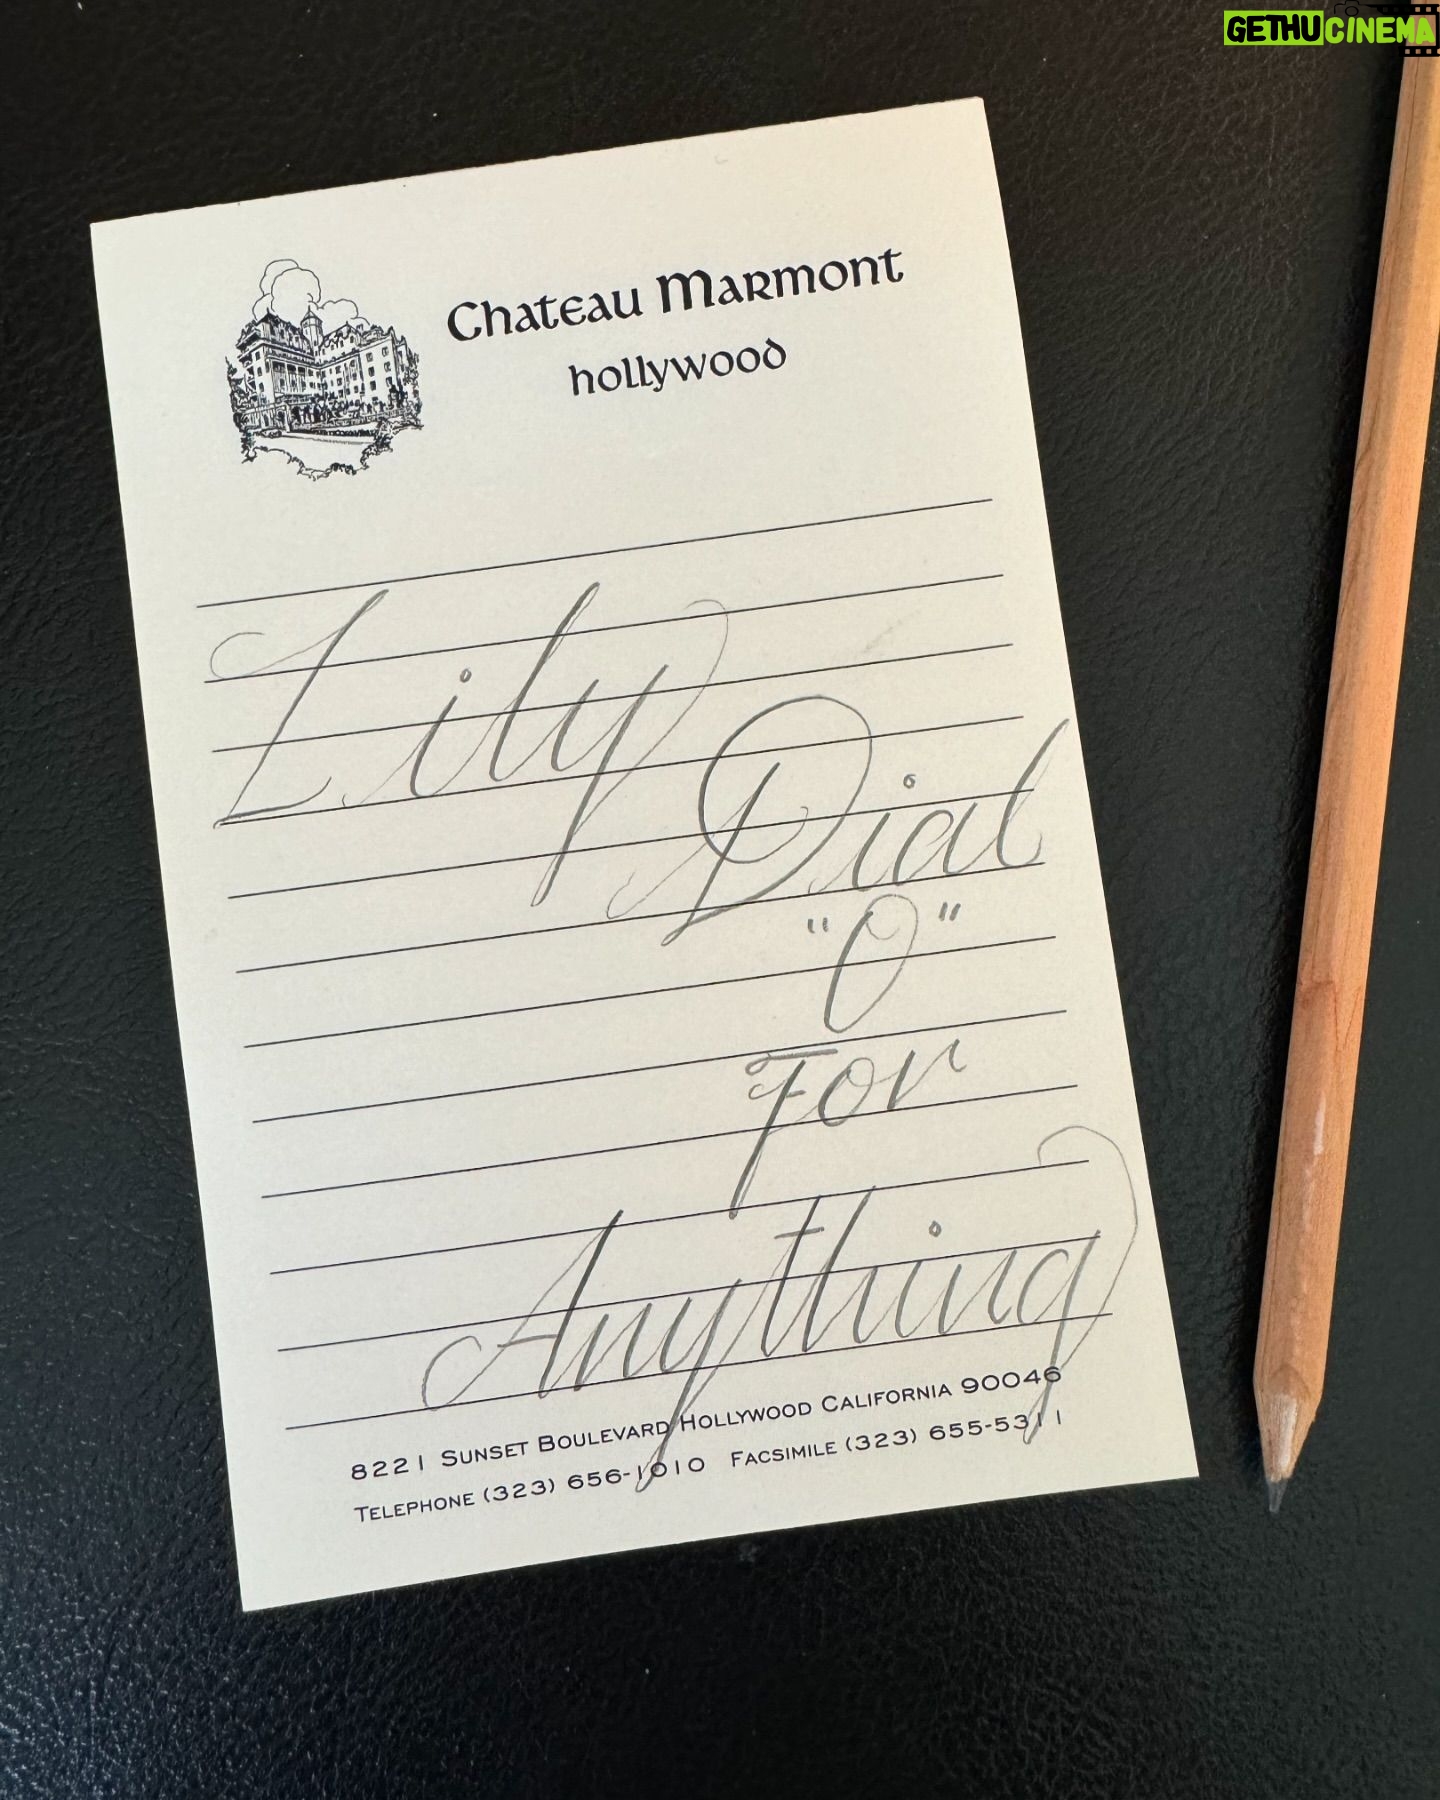 GETHUCINEMA
Chateau Marmont
hollywood
Lily
Dial
"O"
For
Anything
8221 Sunset Boulevard Hollywood California 90046
Telephone (323) 656-1010 Facsimile (323) 655-5311